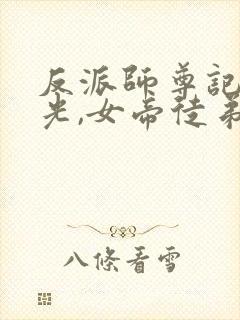 反派師尊記
光,女帝徒弟
八條看雪